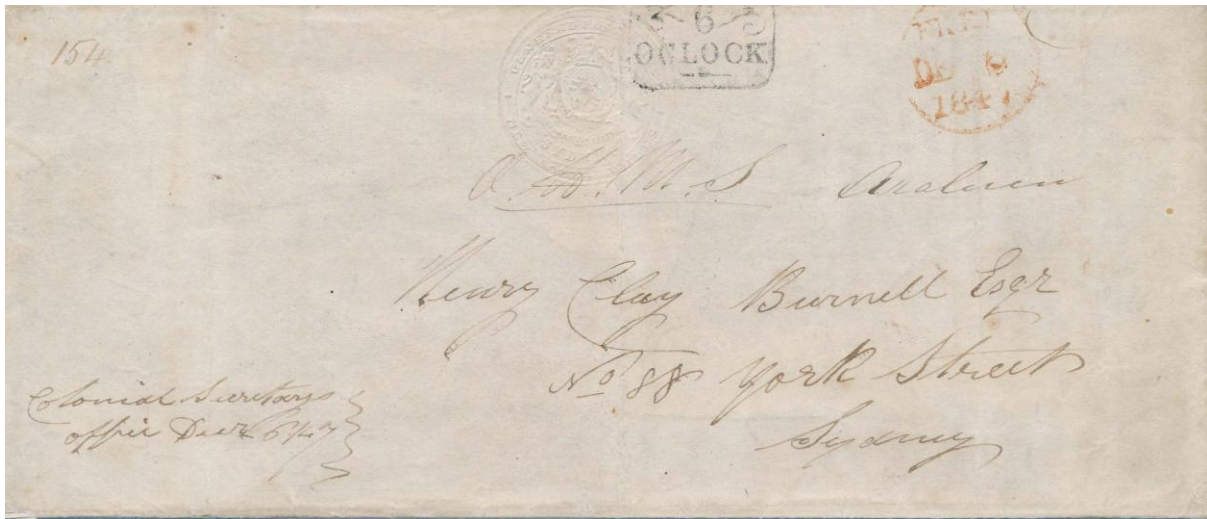 154
6
OCLOCK
FREE
DE 6
184
O.H.M.S
Henry Clay Burnell Esqr
No 88 York Street
Sydney
Colonial Secretarys
office Decr 6/47